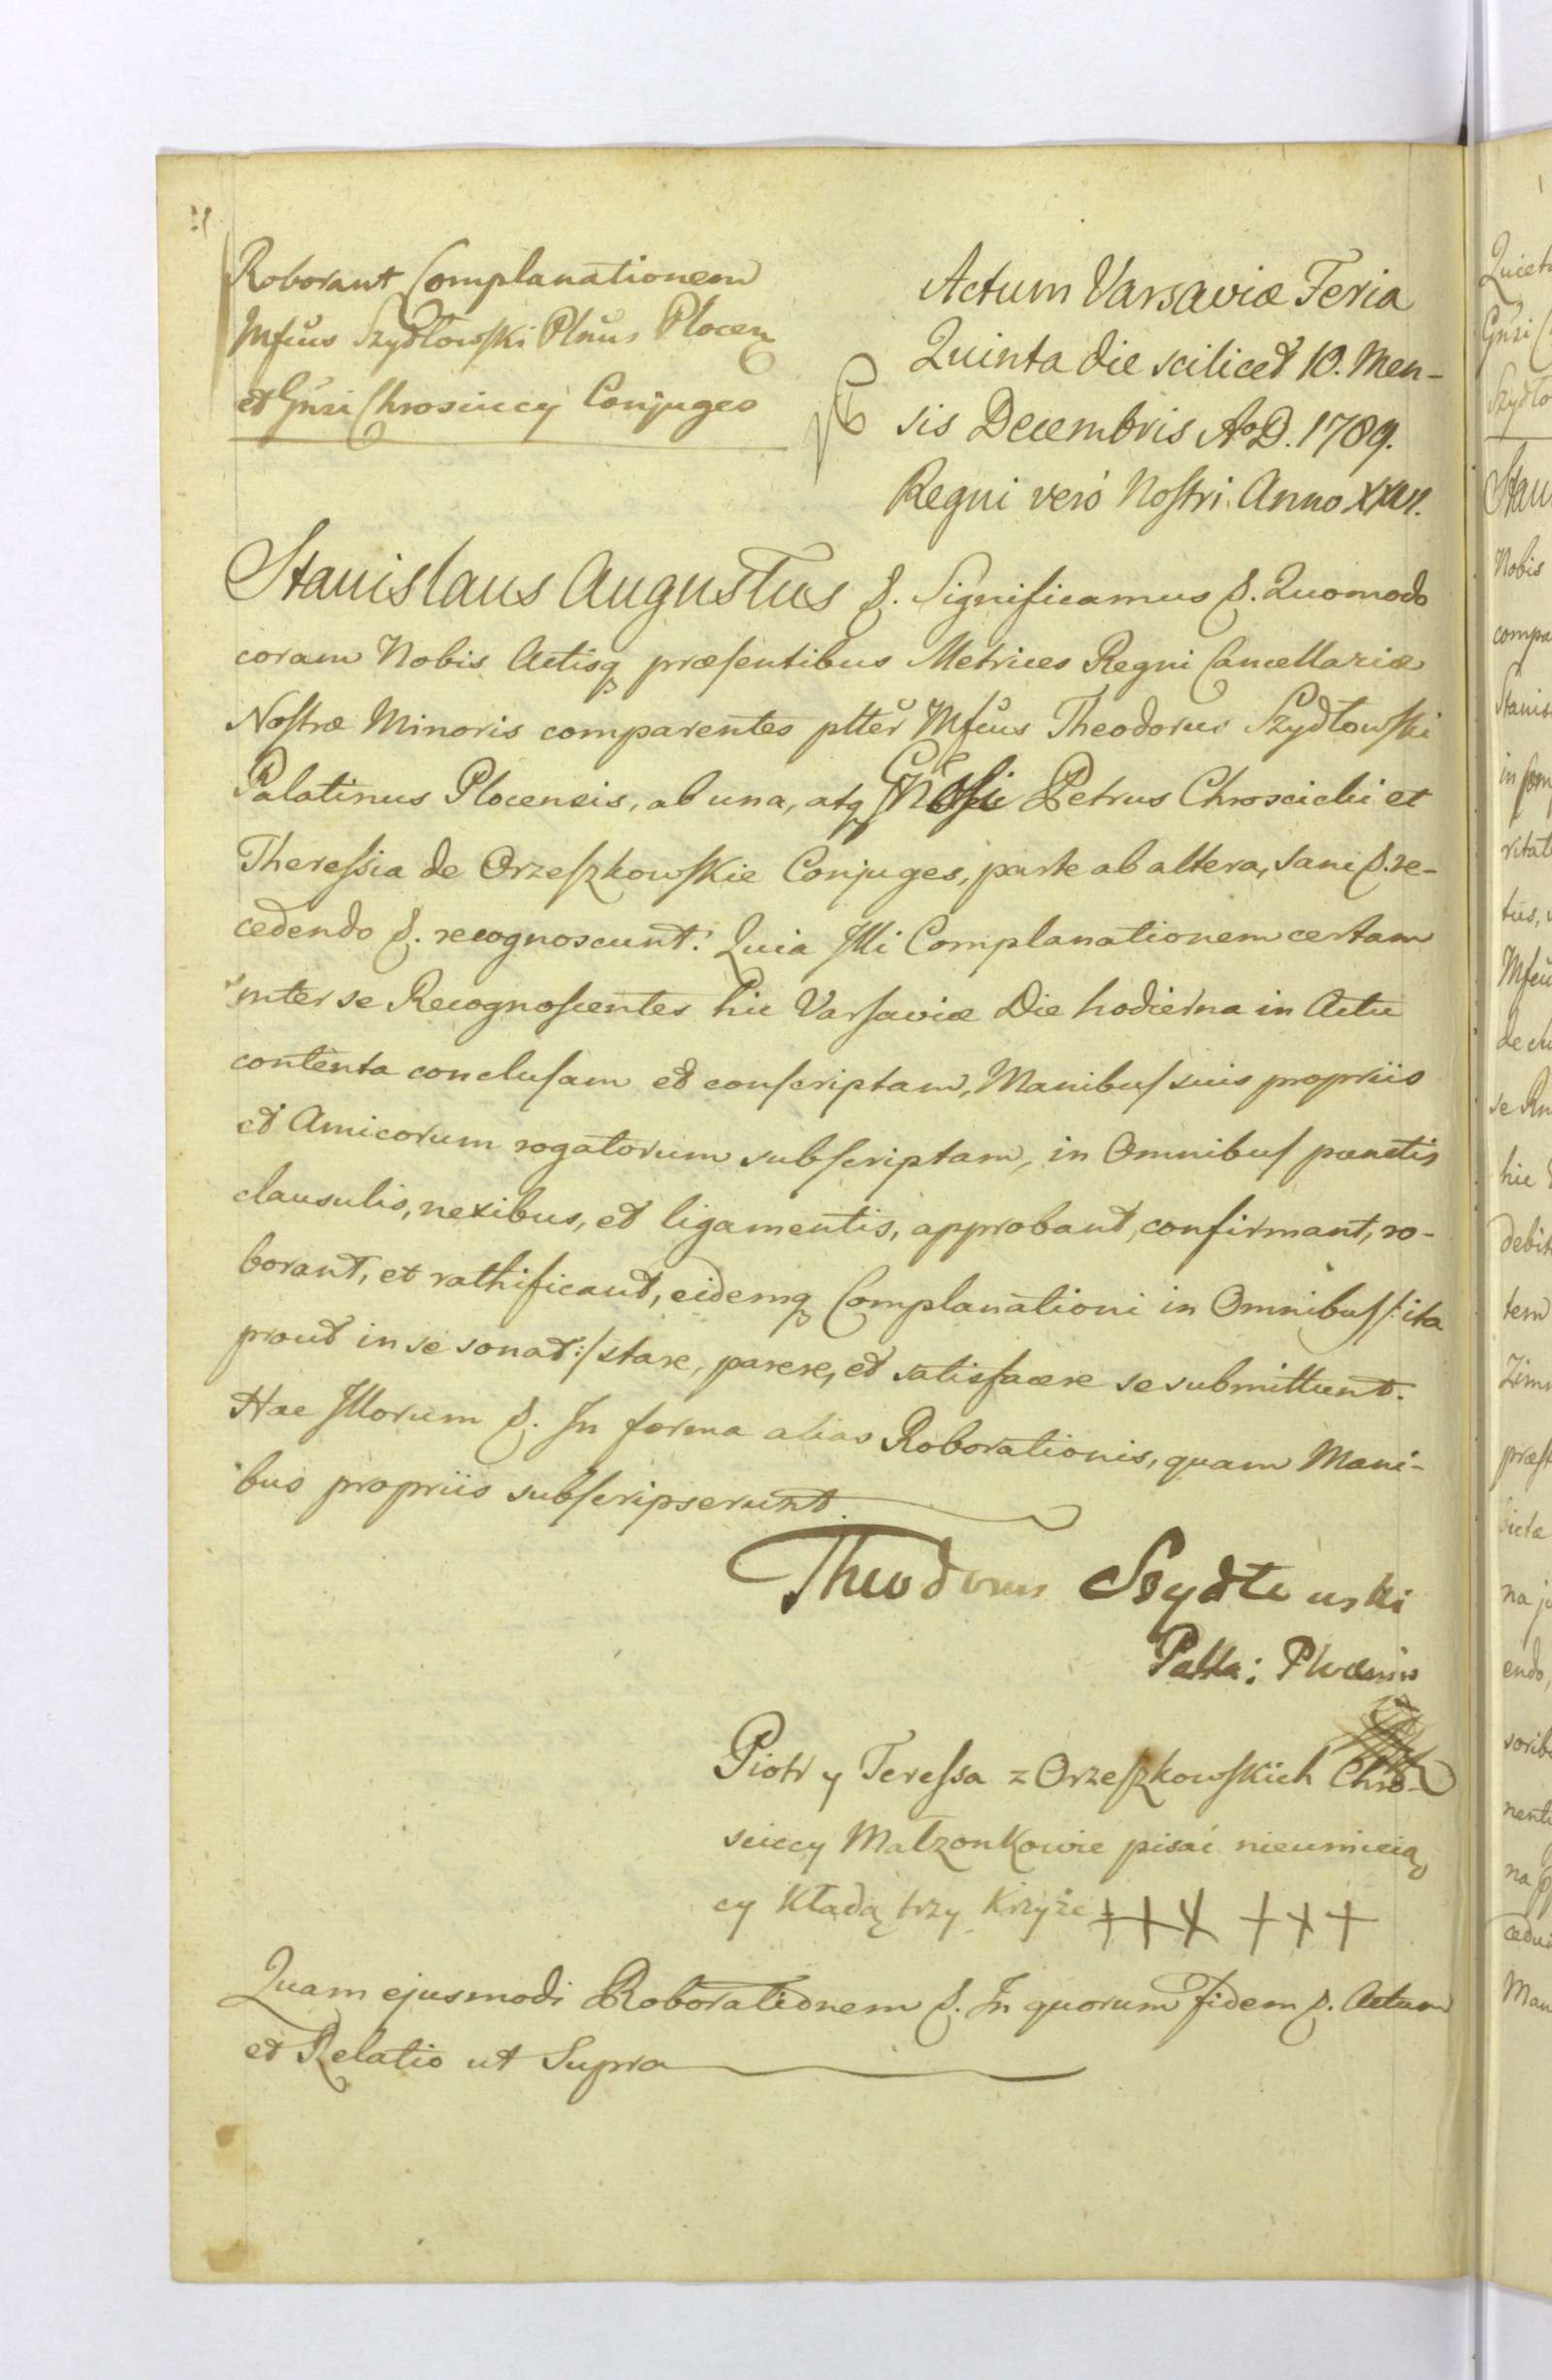 Roborant Complanationem
Mfcus Szydłowski Plnus Plocen
et Gnsi Chrosciccy Conjuges
Actum Varsaviæ Feria
Quinta die scilicet 10. Men-
sis Decembris Ao D. 1789.
Regni veró Nostri Anno
Stanislaus Augustus &. Significamus &. Quomodo
coram Nobis Actisq præsentibus Metrices Regni Cancellariæ
Nostræ Minoris comparentes pltter Mfcus Theodorus Szydłowski
Palatinus Plocensis, ab una, atq Gnosi Petrus Chroscicki et
Theressia de Orzeszkowskie Conjuges, parte ab altera, sani &. re-
cedendo &. recognoscunt. Quia Illi Complanationem certam
inter se Recognoscentes hic Varsaviæ Die hodierna in Actu
contenta conclusam et conscriptam, Manibus suis propriis
et Amicorum rogatorum subscriptam, in Omnibus punctis
clausulis, nexibus, et ligamentis, approbant, confirmant, ro-
borant, et rathificant, eidemq Complanationi in Omnibus /: ita
prout in se sonat :/ stare, parere, et satisfacere se submittunt.
Hac Illorum &. In forma alias Roborationis, quam Mani-
bus propriis subscripserunt.
Theodorus Szydłowski
Palla: Plocensis
Piotr y Teressa z Orzeszkowskich Chro-
sciccy Małzonkowie pisać nieumieią
cy kładą trzy Krzyże +++ +++
Quam ejusmodi Roborationem &. In quorum Fidem &. Actum
et Relatio ut Supra